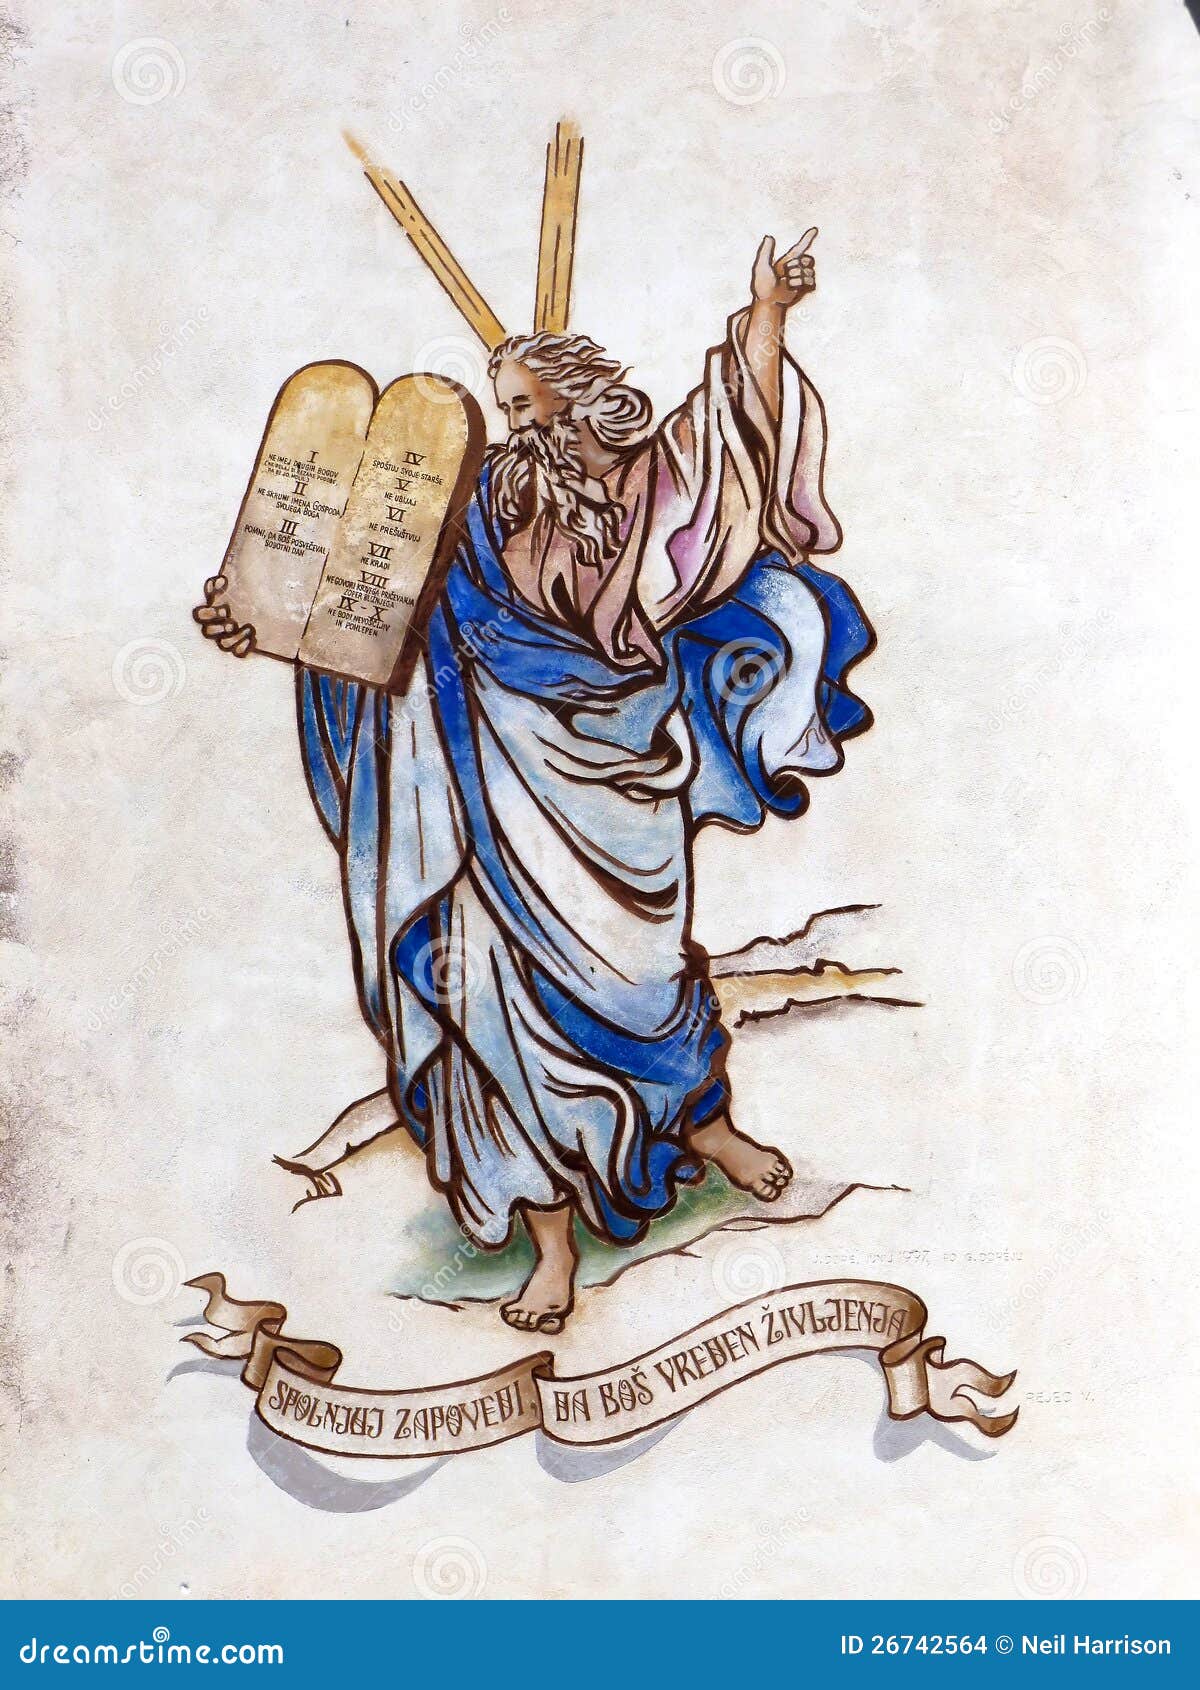 I
NE IMEJ DRUGIH BOGOV
II
NE SKRUNI IMENA GOSPODA,
SVOJEGA BOGA
III
POMNI, DA BOŠ POSVEČEVAL
SOBOTNI DAN
IV
SPOŠTUJ SVOJE STARŠE
V
NE UBIJAJ
VI
NE PREŠUŠTVUJ
VII
NE KRADI
VIII
NE GOVORI KRIVEGA PRIČEVANJA
ZOPER BLIŽNJEGA
IX - X
NE BODI NEVOŠČLJIV
IN POHLEPEN
SPOLNJUJ ZAPOVEDI, DA BOŠ VREDEN ŽIVLJENJA
PEJEC V.
dreamstime.com
ID 26742564 © Neil Harrison